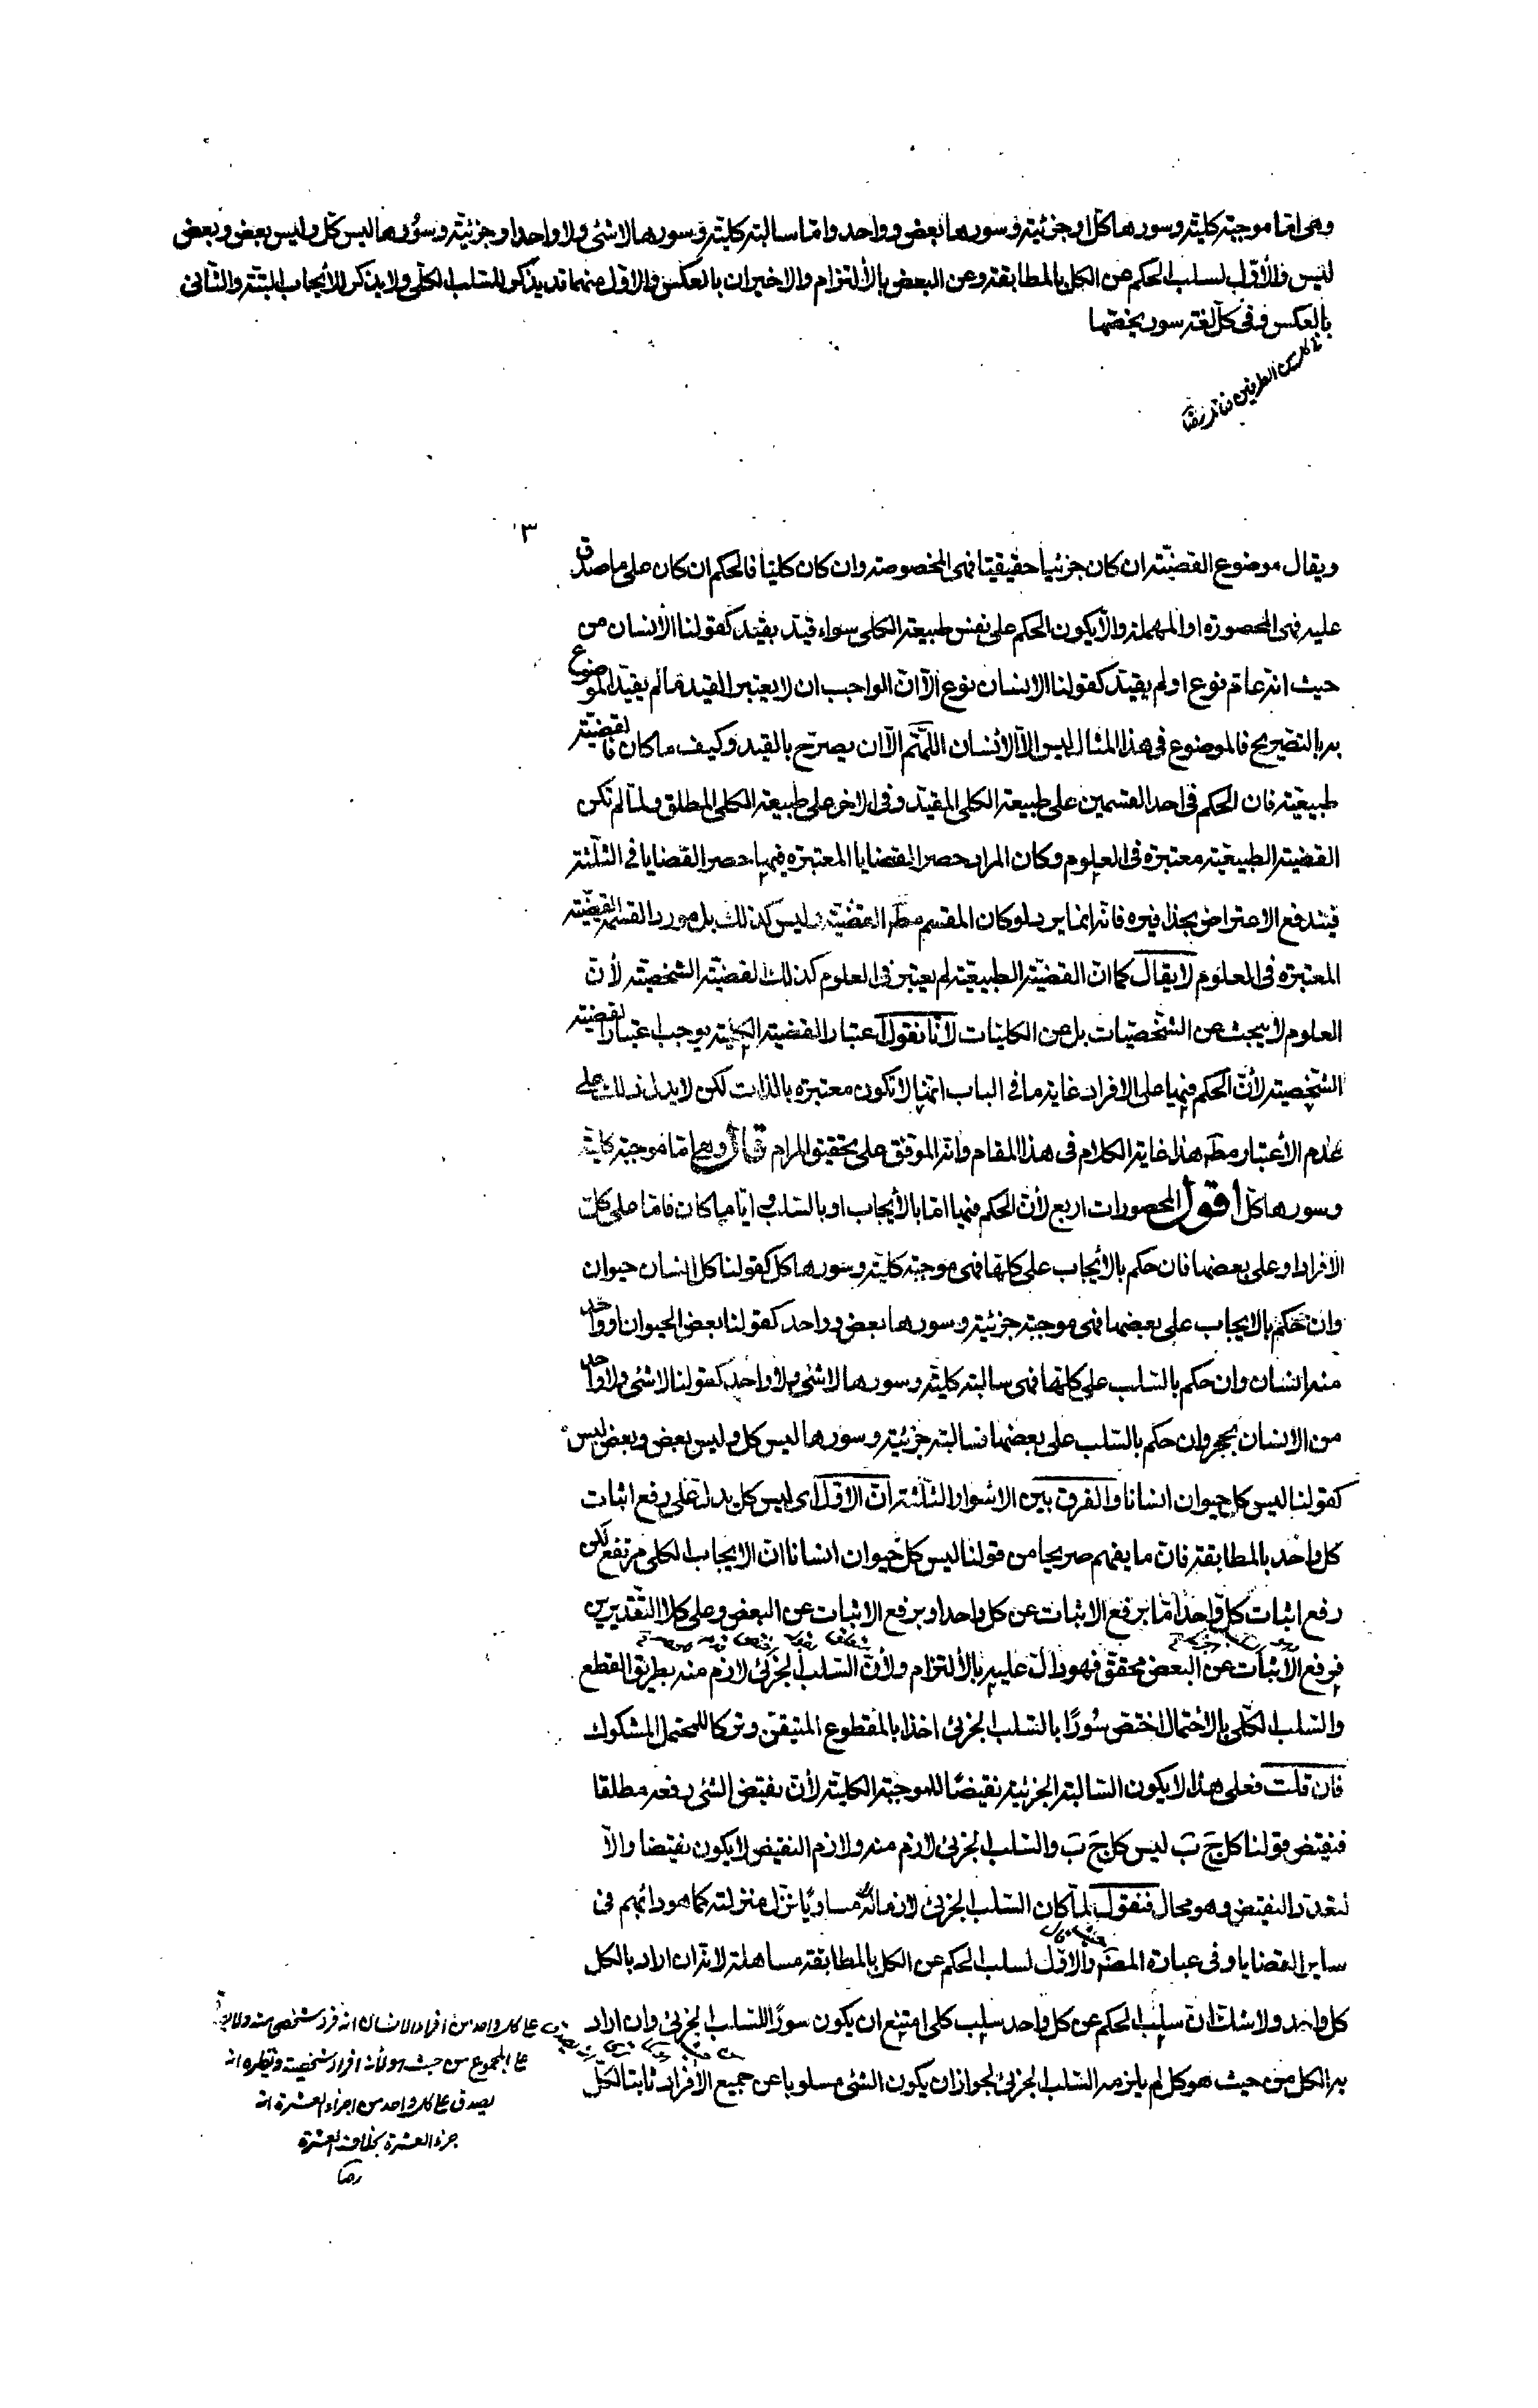 وهى امّا موجبة كلية وسورها كلّ او جزئية وسورها بعض وواحد وامّا سالبة كلية وسورها لا شئ ولا واحد او جزئيّة وسورها ليس كلّ وليس بعض وبعض
ليس والأوّل لسلب الحكم عن الكل بالمطابقة وعن البعض بالألتزام والاخيران بالعكس والاوّل منهما قد يذكر للسّلب الكلّى ولا يذكر للأيجاب البتّة والثّانى
بالعكس وفى كلّ لغة سور يخصّها
٣
ويقال موضوع القضيّة ان كان جزئيا حقيقيّا فهى المخصوصة وان كان كليّا فالحكم ان كان على ما صدق
عليه فهى المحصورة او المهملة والّا يكون الحكم على نفس طبيعة الكلى سواء قيّد بقيد كقولنا الأنسان من
حيث انه عامّ نوع او لم يقيّد كقولنا الانسان نوع الّا انّ الواجب ان لا يعتبر القيد ما لم يقيّد الموضوع
به بالتصّريح فالموضوع فى هذا المثال ليس الّا الأنسان اللّهمّ الّا ان يصرّح بالقيد وكيف ما كان فالقضيّة
طبيعيّة فان الحكم فى احد القسمين على طبيعة الكلى المقيّد وفى الاخر على طبيعة الكلى المطلق ولمّا لم تكن
القضيّة الطبيعيّة معتبرة فى العلوم وكان المراد حصر القضايا المعتبرة فيها حصر القضايا فى الثّلثة
فيندفع الاعتراض بحذافيره فانّه انما يرد لو كان المقسم مطم القضيّة وليس كذلك بل مورد القسمة القضيّة
المعتبرة فى العلوم لا يقال كما انّ القضيّة الطبيعيّة لم يعتبر فى العلوم كذلك القضيّة الشّخصيّة لأنّ
العلوم لا يبحث عن الشّخصيّات بل عن الكليّات لأنّا نقول اعتبار القضيّة الكليّة يوجب اعتبار القضيّة
الشّخصيّة لأنّ الحكم فيها على الافراد غاية ما فى الباب انّها لا تكون معتبرة بالذات لكن لا يدل ذلك على
عدم الأعتبار مطم هذا غاية الكلام فى هذا المقام والله الموفّق على تحقيق المرام قال وهى امّا موجبة كليّة
وسورها كلّ اقول المحصورات اربع لأنّ الحكم فيها امّا بالأيجاب او بالسّلب وايّا ما كان فامّا على كلّ
الافراد او على بعضها فان حكم بالأيجاب على كلّها فهى موجبة كليّة وسورها كل كقولنا كل انسان حيوان
وان حكم بالايجاب على بعضها فهى موجبة جزئيّة وسورها بعض وواحد كقولنا بعض الحيوان او واحد
منه انسان وان حكم بالسّلب على كلّها فهى سالبة كليّة وسورها لا شئ ولا واحد كقولنا لا شئ ولا واحد
من الانسان بحجر وان حكم بالسّلب على بعضها فسالبة جزئيّة وسورها ليس كل وليس بعض وبعض ليس
كقولنا ليس كل حيوان انسانا والفرق بين الاسوار الثّلثة انّ الاوّل اى ليس كل يدلّ على رفع اثبات
كل واحد بالمطابقة فانّ ما يفهم صريحا من قولنا ليس كلّ حيوان انسانا انّ الايجاب الكلى مرتفع لكن
رفع اثبات كلّ واحد امّا برفع الاثبات عن كل واحد او برفع الاثبات عن البعض وعلى كلا التّقديرين
فرفع الاثبات عن البعض محقّق فهو دالّ عليه بالألتزام ولأنّ السّلب الجزئى لازم منه بطريق القطع
والسّلب الكلّى بالأحتمال اختصّ سورًا بالسّلب الجزئى اخذا بالمقطوع المتيقّن وتركا للمحتمل المشكوك
فان قلت فعلى هذا لا يكون السّالبة الجزئيّة نقيضًا للموجبة الكليّة لأنّ نقيض الشئ رفعه مطلقا
فنقيض قولنا كل جَ بَ ليس كل جَ بَ والسّلب الجزئى لازم منه ولازم النقيض لا يكون نقيضا والّا
لتعدّد النقيض وهو محال فنقول لمّا كان السّلب الجزئى لازما له مساويًا نزّل منزلته كما هو دأبهم فى
ساير القضايا وفى عبارة المصنّف والاوّل لسلب الحكم عن الكل بالمطابقة مساهلة لانّه ان اراد بالكل
كل واحد ولا شك انّ سلب الحكم عن كل واحد سلب كلى امتنع ان يكون سورًا للسّلب الجزئى وان اراد
به الكل من حيث هو كل لم يلزمه السّلب الجزئى لجواز ان يكون الشئ مسلوبا عن جميع الأفراد ثابتا لكلّ
على كل واحد من افراد الانسان انه فرد شخصى منه ولا
على المجموع من حيث هو لأنه افراد شخصية ونظيره انه
يصدق على كل واحد من اجزاء العشرة انه
جزء العشرة بخلاف العشرة
رضا